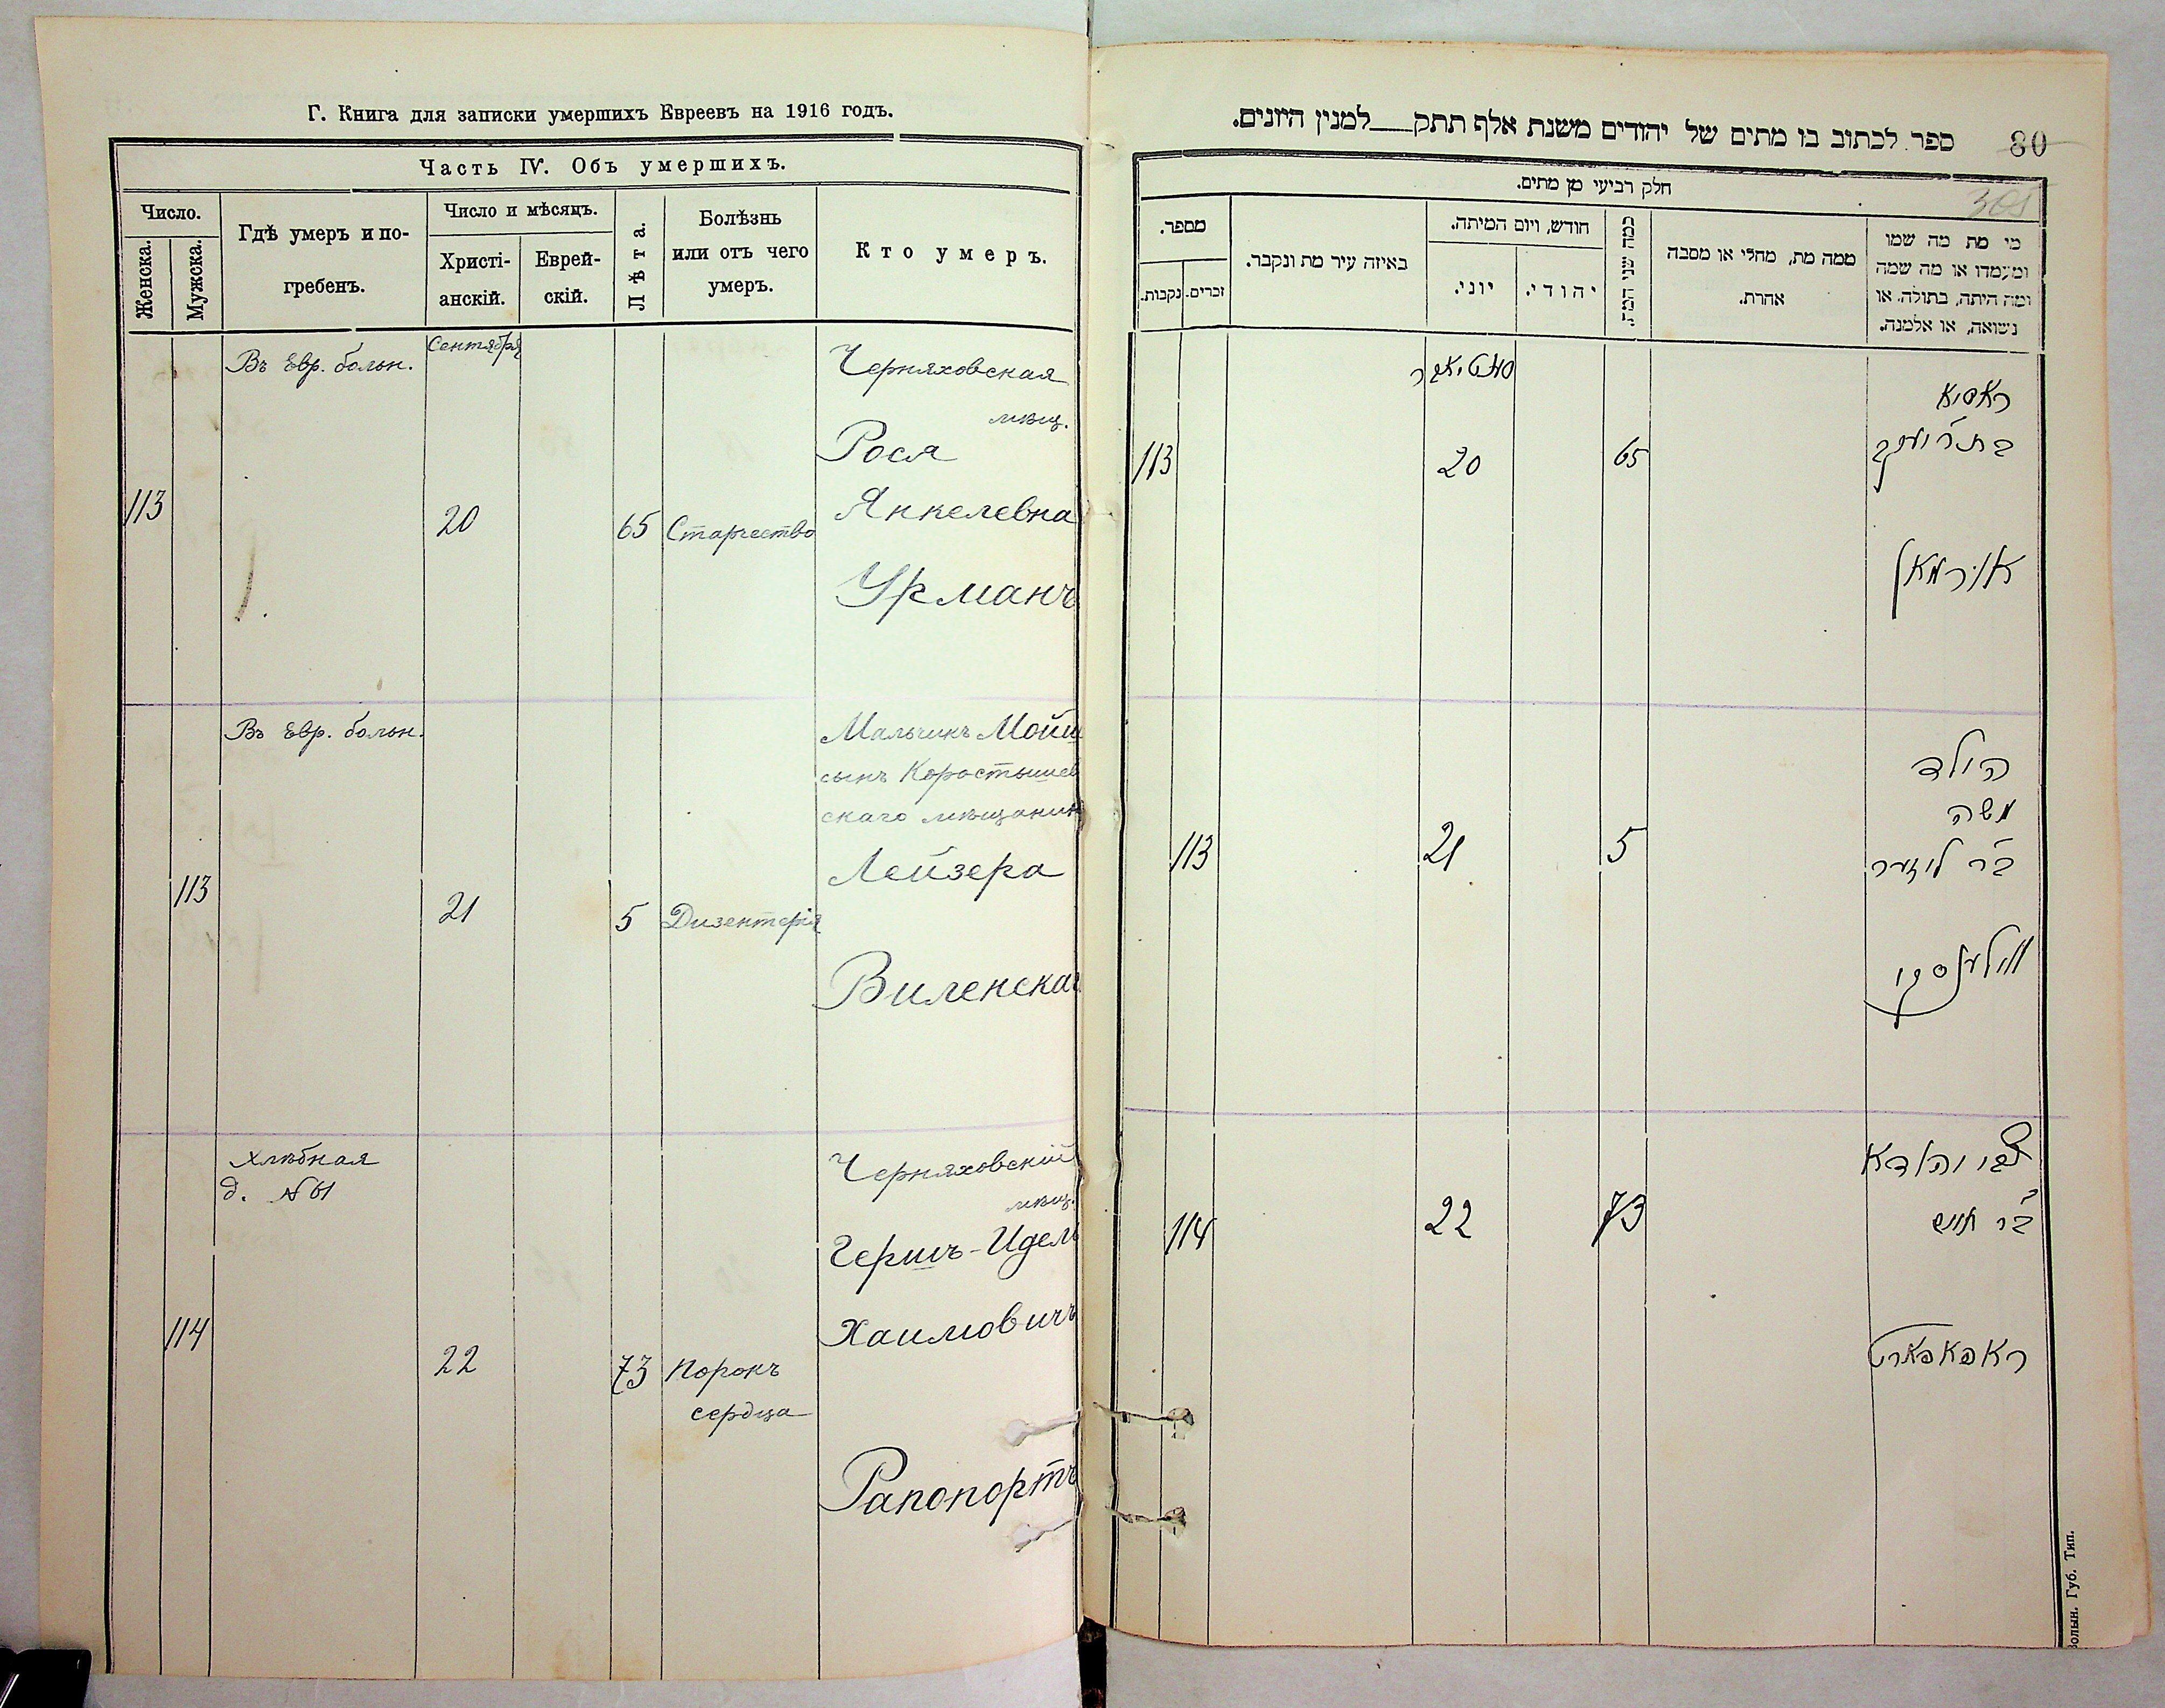 Г. Книга для записки умершихъ Евреевъ на 1916 годъ.
Часть IV. Объ умершихъ.
Число.
Женска.
Мужска.
Гдѣ умеръ и по-
гребенъ.
Число и мѣсяцъ.
Христі-
анскій.
Еврей-
скій.
Лѣта.
Болѣзнь
или отъ чего
умеръ.
Кто умеръ.
Въ Евр. больн.
Сентября
Черняховская
мѣщ.
Рося
113
20
65
Старчество
Янкелевна
Урманъ
Въ Евр. больн.
Мальчикъ Мойш
сынъ Коростышев
скаго мѣщанин
Лейзера
113
21
5
Дизентерія
Виленскаг
Хлѣбная
д. №61
Черняховскій
мѣщ.
Гершъ-Идель
Хаимовичъ
114
22
73
Порокъ
сердца
Рапопортъ
80
305
ספר לכתוב בו מתים של יהודים משנת אלף תתק__למנין היונים.
חלק רביעי מן מתים.
מספר.
זכרים.
נקבות.
באיזה עיר מת ונקבר.
חודש, ויום המיתה.
יוני.
יהודי.
כמה שני המת.
ממה מת, מחלי או מסבה
אחרת.
מי מת מה שמו
ומעמדו או מה שמה
ומה היתה, בתולה, או
נשואה, או אלמנה.
ראסיא
113
20
65
אורמאן
הילד
משה
113
21
5
ב"ר ליזער
ווילענסקי
114
22
73
ב"ר חיים
ראפאפארט
Волын. Губ. Тип.